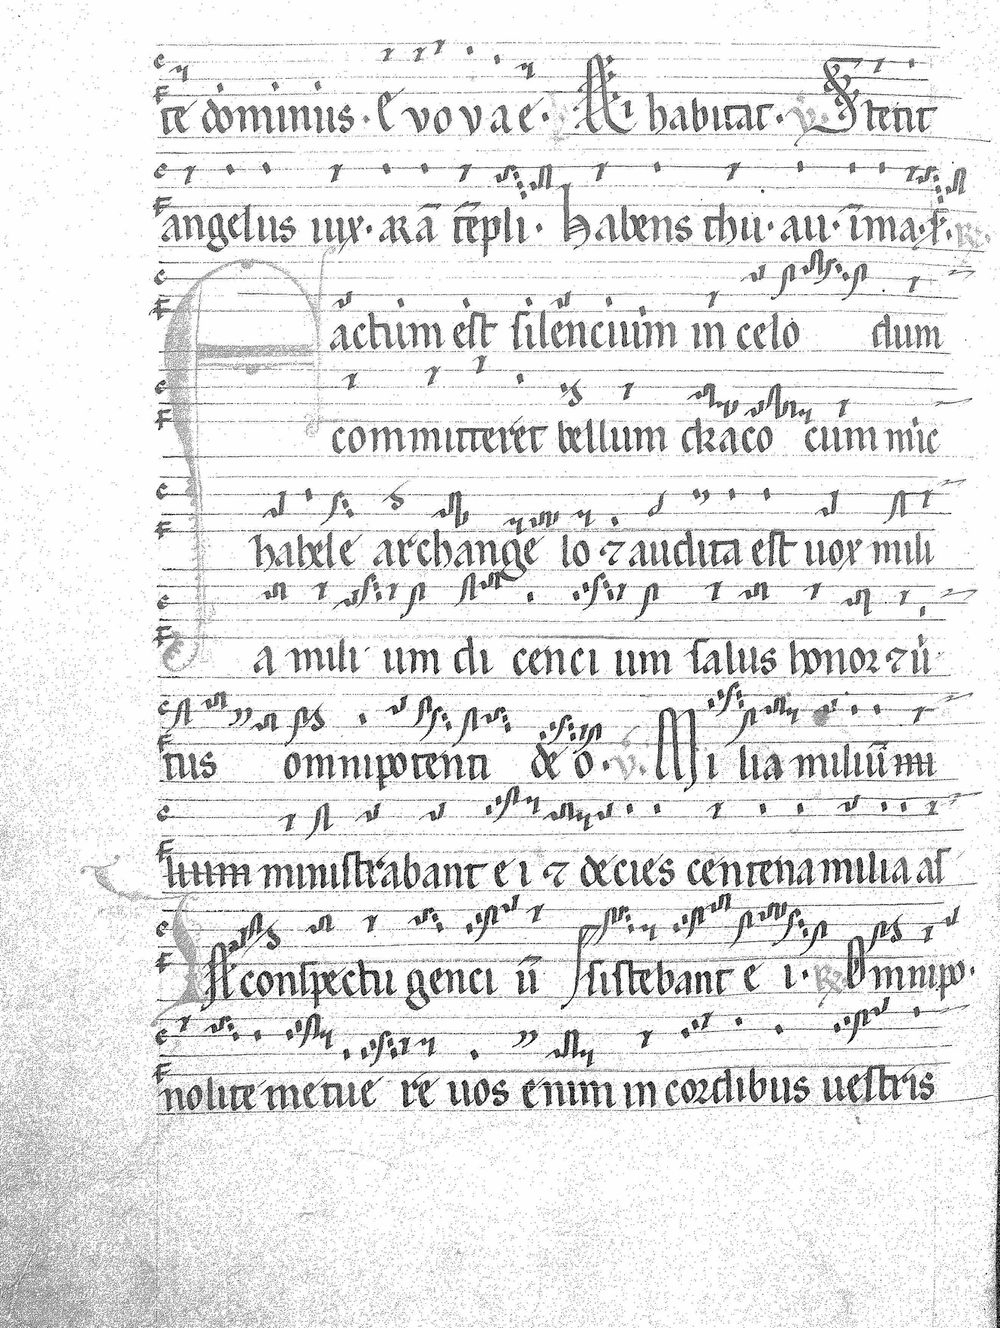 te dominus · e v o v a e · Qui habitat · v. Stetit
angelus iux · arā tēpli · Habens thu · au · ī ma · s · R.
Factum est silencium in celo dum
committeret bellum draco cum mic
habele archange lo ⁊ audita est uox mili
a mili um di cenci um salus honor ⁊ ū
tus omnipotenti de o · v. Mi lia miliū mi
lium ministrabant e i ⁊ decies centena milia as
In conspectu genci ū ssistebant e i · R. Omnipo ·
nolite metue re uos enim in cordibus uestris